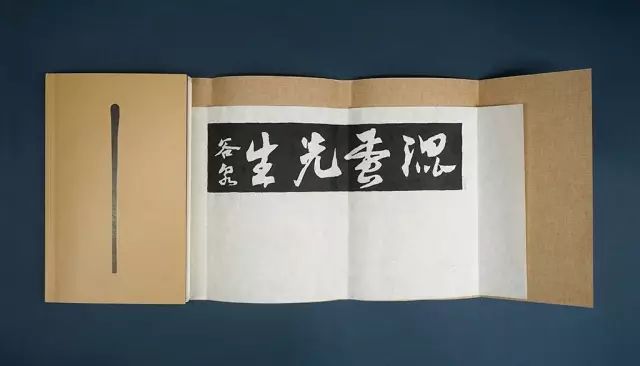 混蛋先生
谷泉